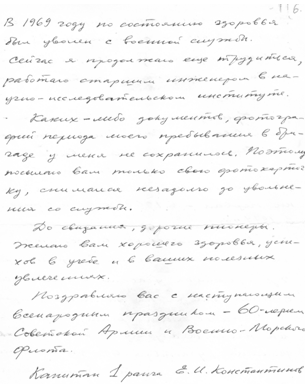 - 116.
В 1969 году по состоянию здоровья
был уволен с военной службы.
Сейчас я продолжаю еще трудиться,
работаю старшим инженером в на-
учно-исследовательском институте.
Каких-либо документов, фотогра-
фий периода моего пребывания в бри-
гаде у меня не сохранилось. Поэтому
посылаю вам только свою фотокарточ-
ку, снимался незадолго до увольне-
ния со службы.
До свидания, дорогие пионеры.
Желаю вам хорошего здоровья, успе-
хов в учебе и в ваших полезных
увлечениях.
Поздравляю вас с наступающим
всенародным праздником - 60-летием
Советской Армии и Военно-Морского
Флота.
Капитан 1 ранга Е.И. Константинов